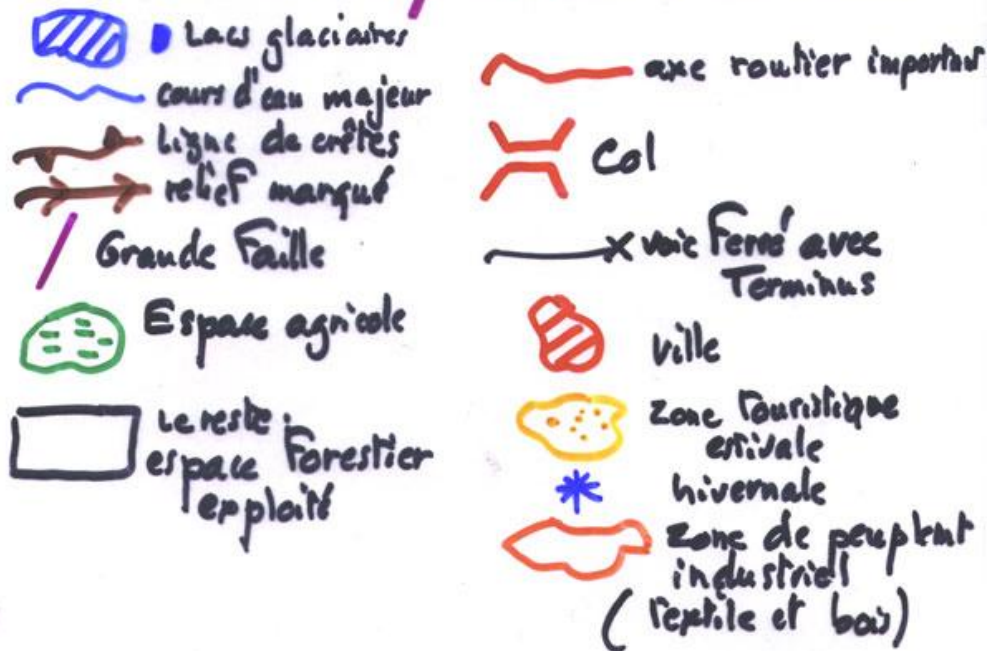 Lacs glaciaires
cours d'eau majeur
Ligne de crêtes
relief marqué
Grande Faille
Espace agricole
Le reste :
espace Forestier
exploité
axe routier important
Col
voie Ferré avec
Terminus
ville
zone Touristique
estivale
hivernale
zone de peuplemt
industriel
(Textile et bois)